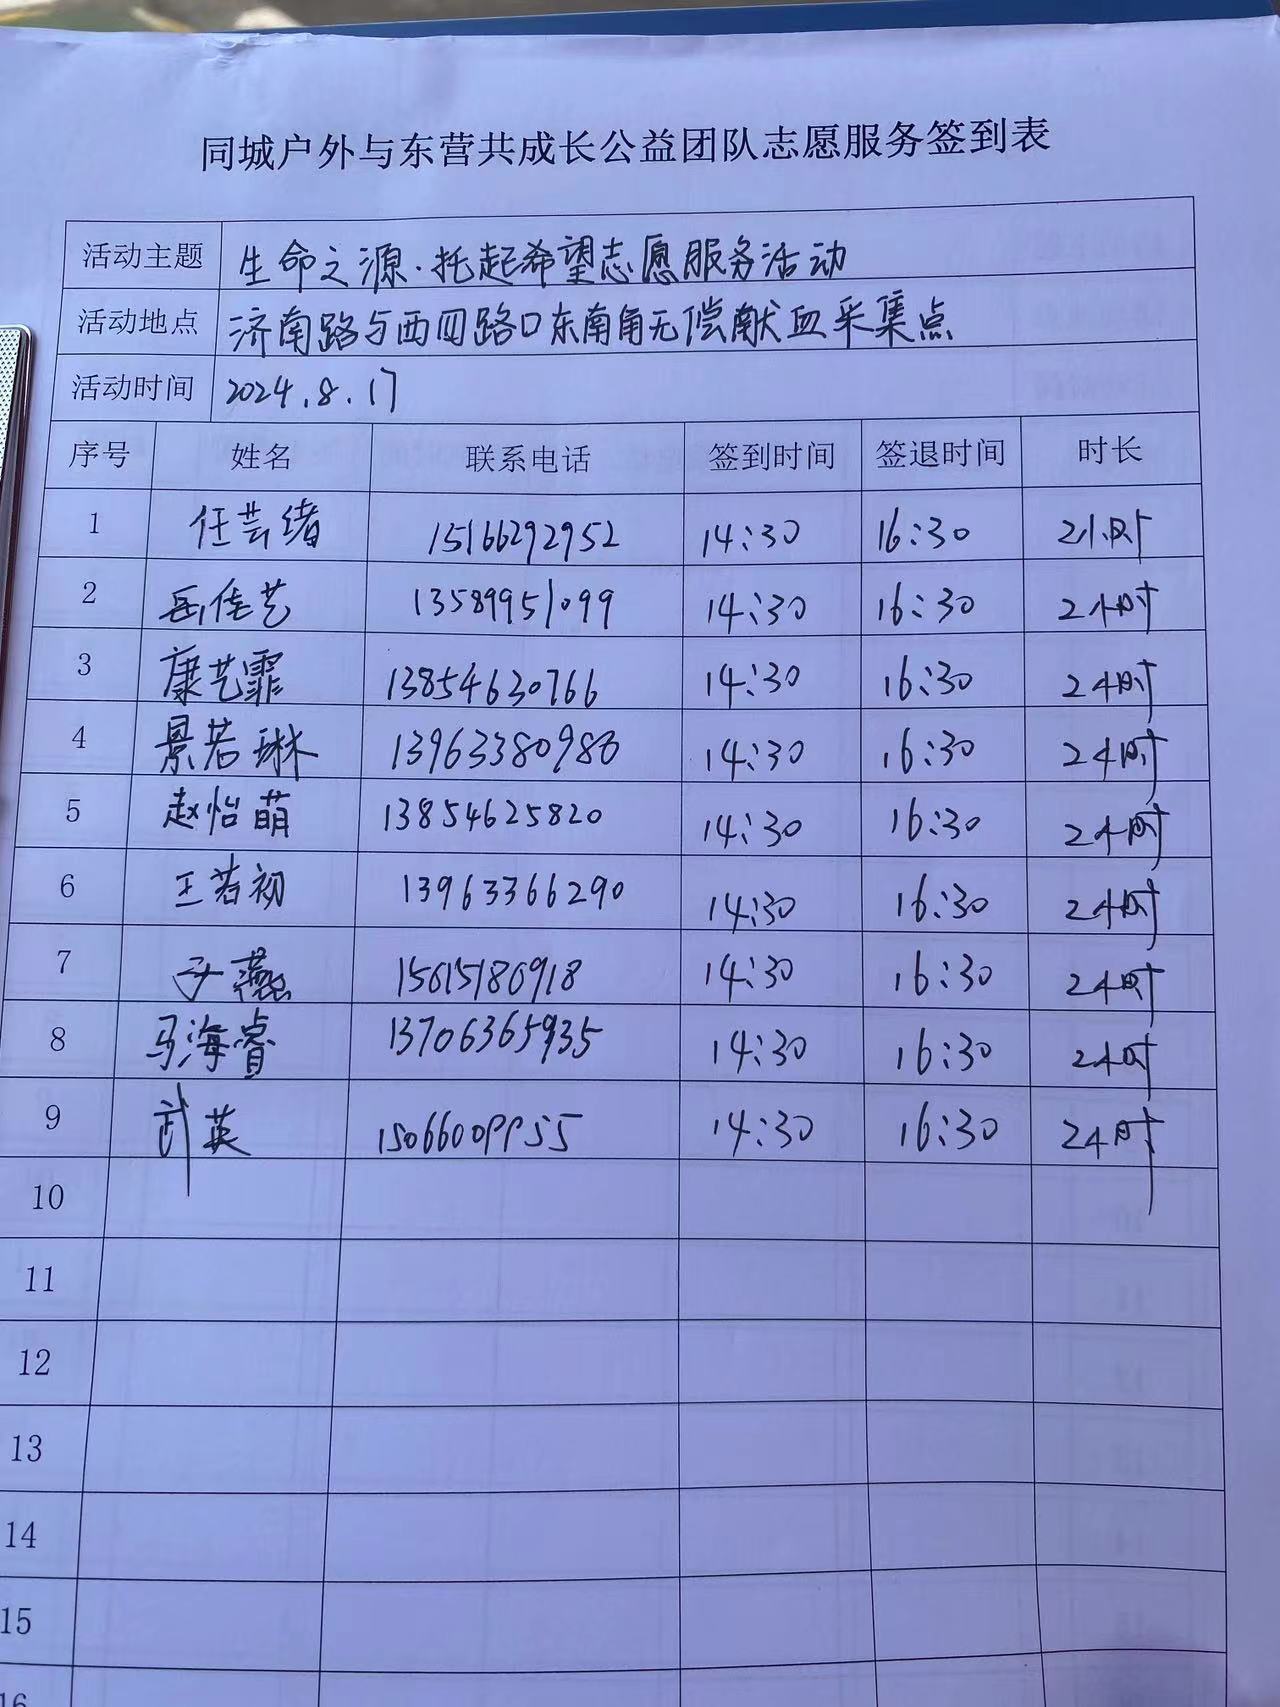 同城户外与东营共成长公益团队志愿服务签到表
活动主题 生命之源·托起希望志愿服务活动
活动地点 济南路与西四路口东南角无偿献血采集点
活动时间 2024.8.17
序号 姓名 联系电话 签到时间 签退时间 时长
1 任芸绪 15166292952 14:30 16:30 2小时
2 岳佳艺 13589951099 14:30 16:30 2小时
3 康艺霏 13854630766 14:30 16:30 2小时
4 景若琳 13963380980 14:30 16:30 2小时
5 赵怡萌 13854625820 14:30 16:30 2小时
6 王若初 13963366290 14:30 16:30 2小时
7 14:30 16:30 2小时
8 马海睿 13706365935 14:30 16:30 2小时
9 武英 15066009955 14:30 16:30 2小时
10
11
12
13
14
15
16